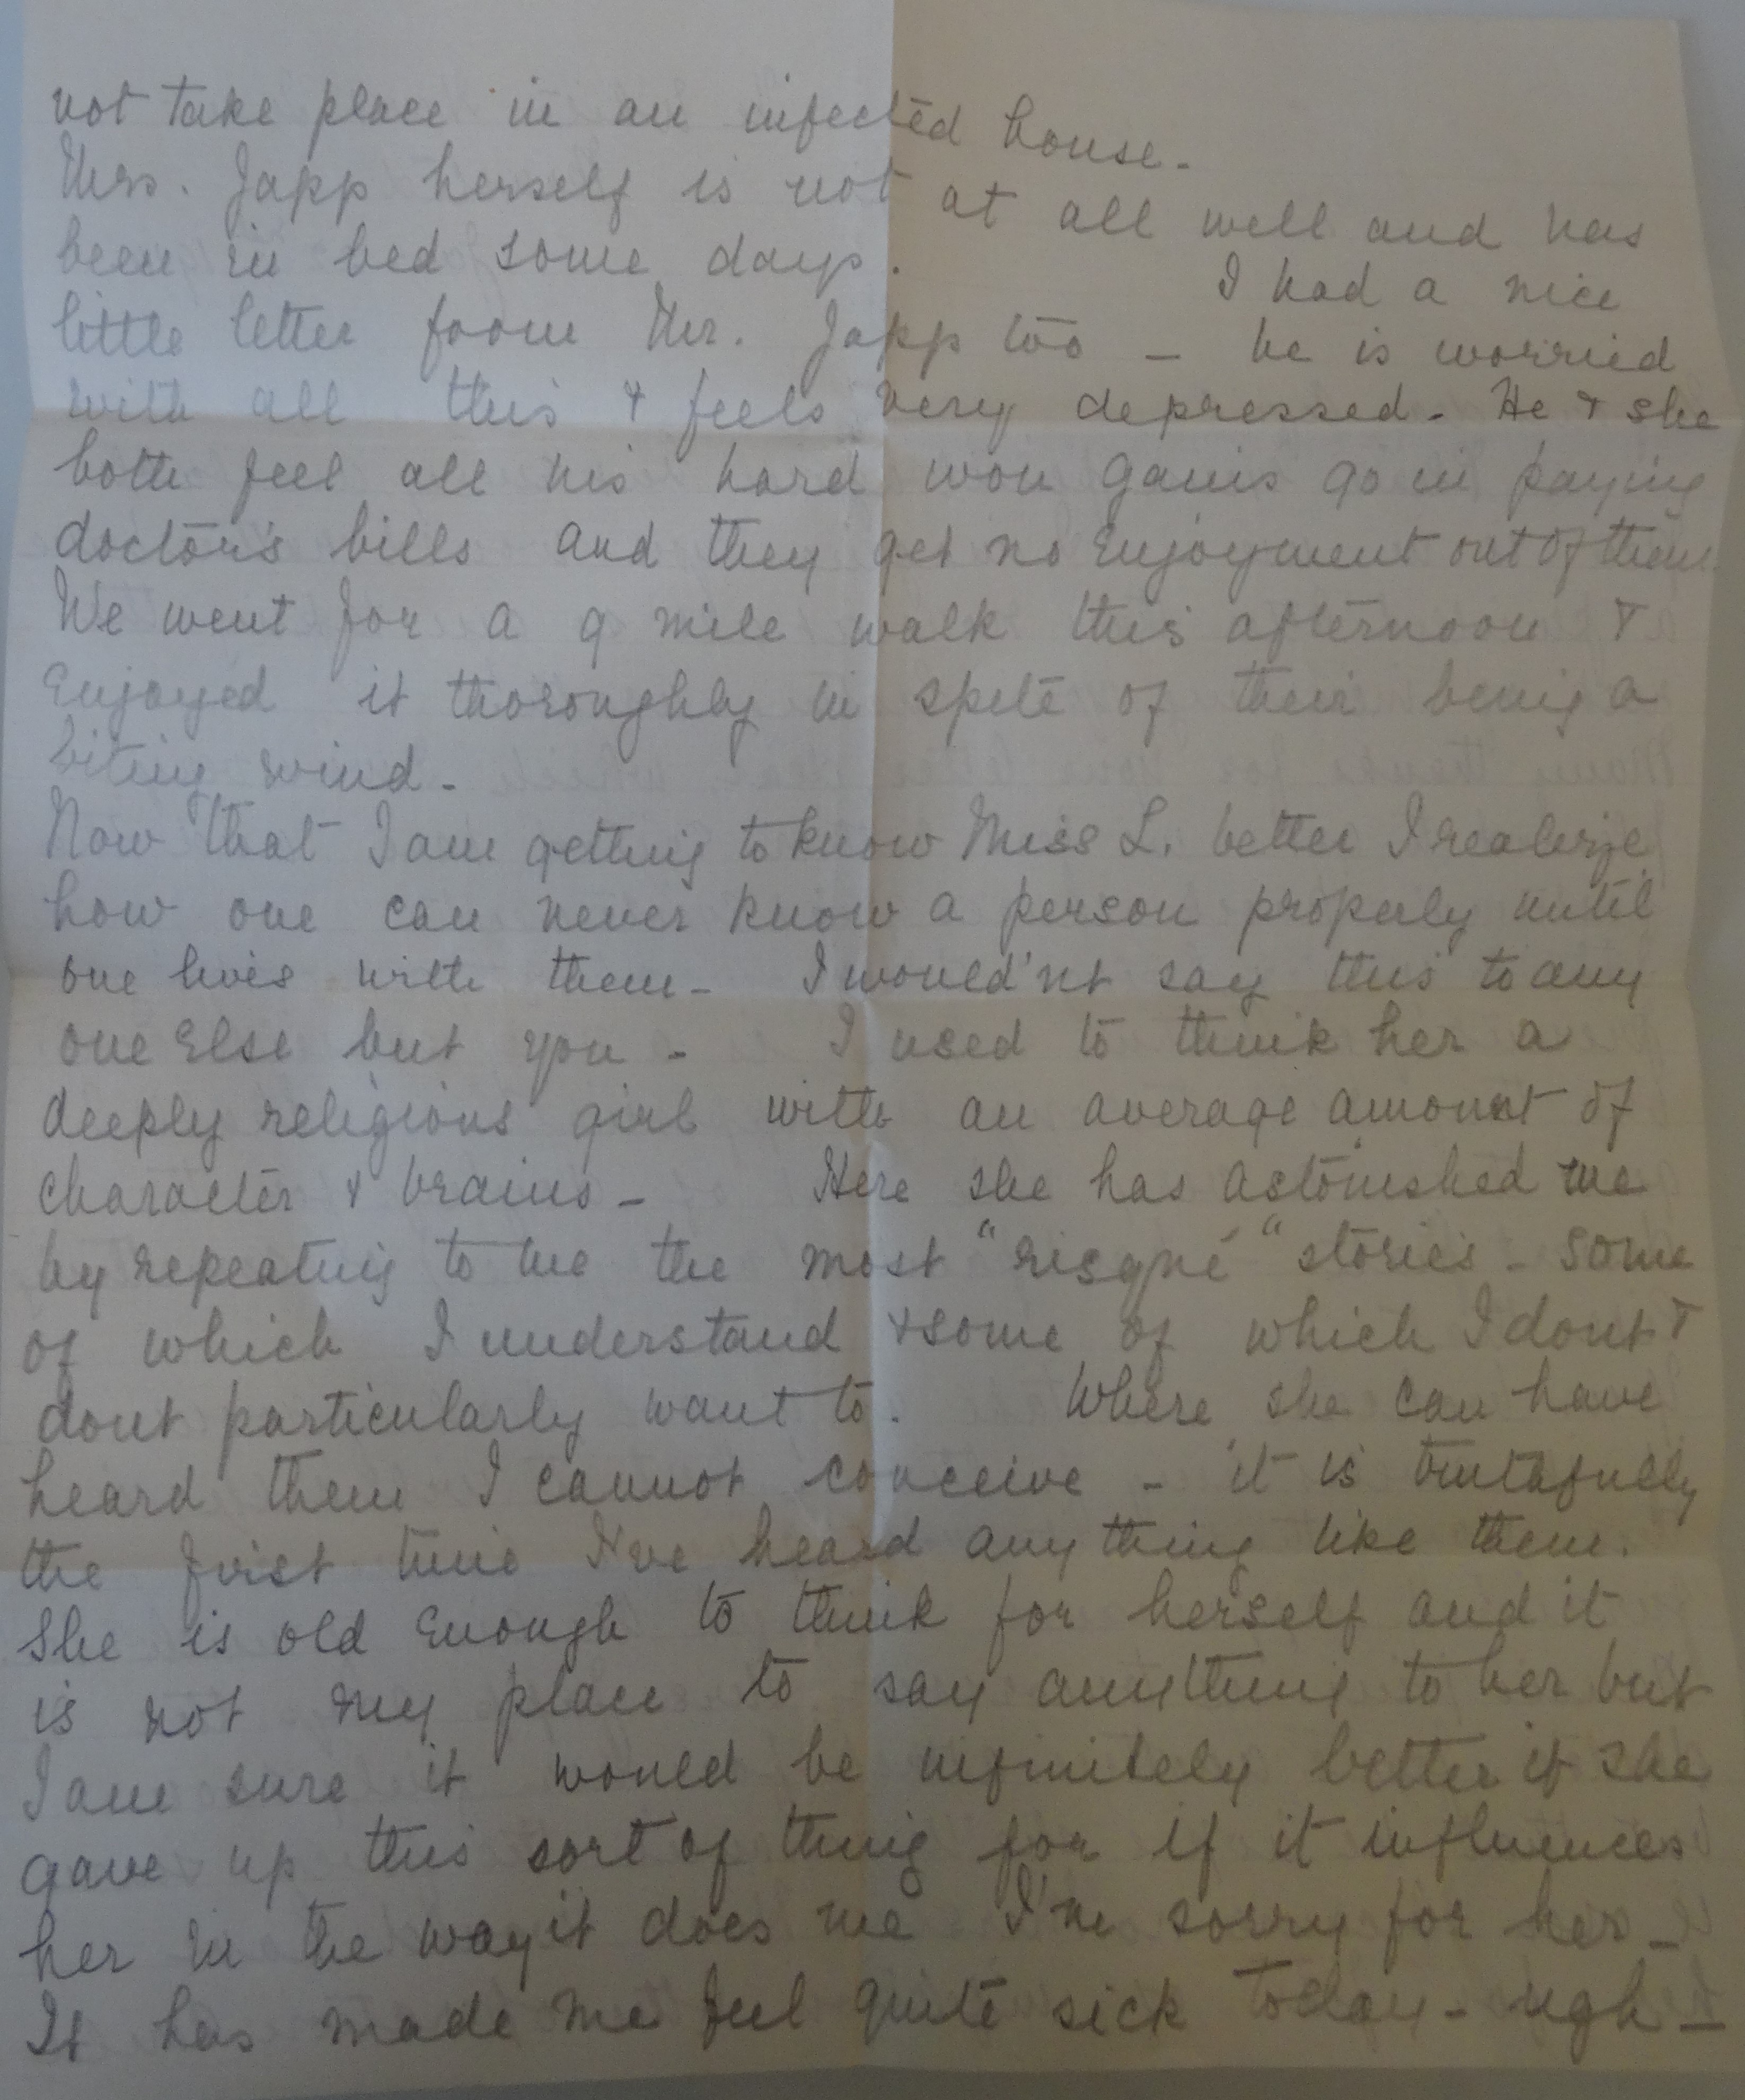 not take place in an infected house.
Mrs. Japp herself is not at all well and has
been in bed some days. I had a nice
little letter from Mr. Japp too – he is worried
with all this & feels very depressed – He & she
both feel all his hard won gains go in paying
doctor's bills and they get no enjoyment out of them.
We went for a 9 mile walk this afternoon &
enjoyed it thoroughly in spite of their being a
biting wind –
Now that I am getting to know Miss L. better I realize
how one can never know a person properly until
one lives with them – I would'nt say this to any
one else but you – I used to think her a
deeply religious girl with an average amount of
character & brains – Here she has astonished me
by repeating to me the most "risqué" stories – some
of which I understand & some of which I dont &
dont particularly want to. Where she can have
heard them I cannot conceive – it is truthfully
the first time I've heard any thing like them.
She is old enough to think for herself and it
is not my place to say anything to her but
I am sure it would be infinitely better if she
gave up this sort of thing for if it influences
her in the way it does me I'm sorry for her –
It has made me feel quite sick today – ugh –